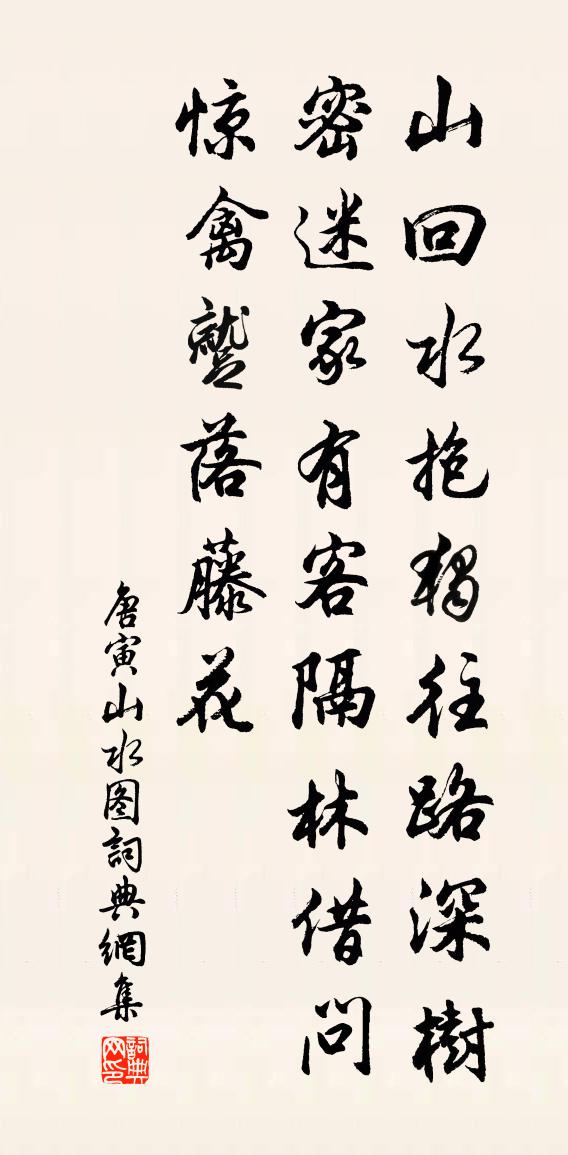 山回水抱獨往路深樹
密迷家有客隔林借問
惊禽蹵落藤花
唐寅山水图詞典網集
詞典网印